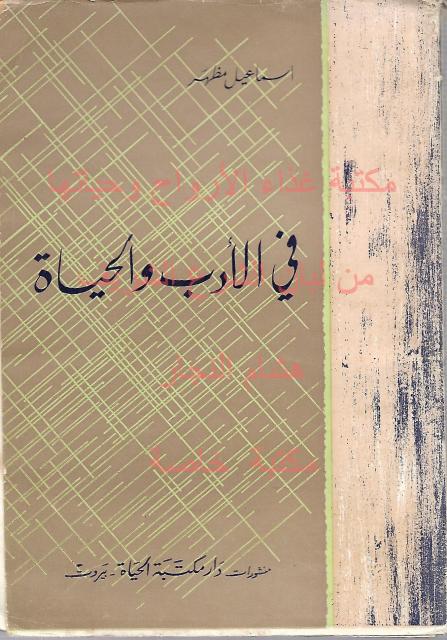 اسماعيل مظهر
مكتبة غذاء الأرواح وحبتها
في الأدب والحياة
من
هشام النجار
مكتبة خاصة
منشورات دار مكتبة الحياة - بيروت